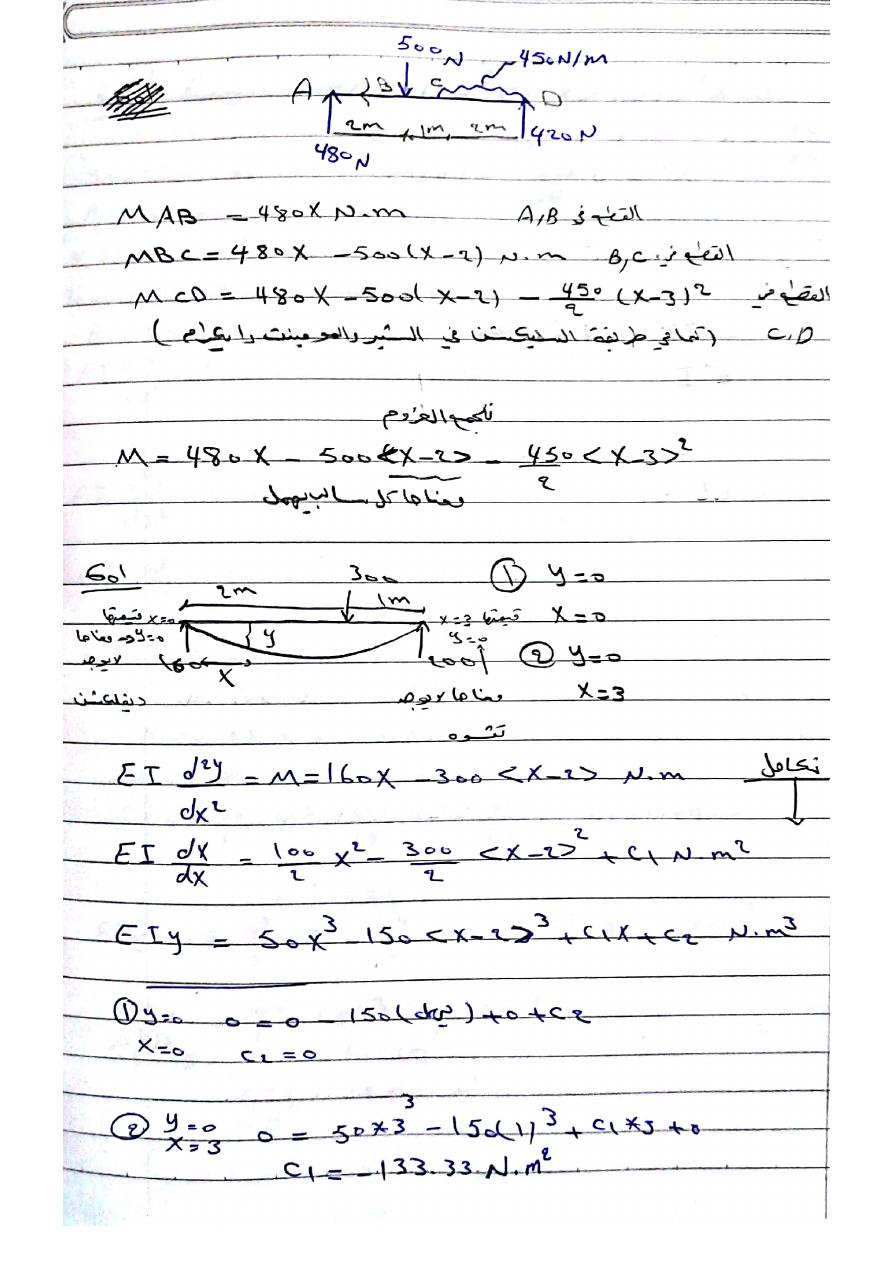 500N
450N/m
A B C D
2m 1m 2m
480N 420N
MAB = 480X N.m القطع في A,B
MBC = 480X - 500(X-2) N.m القطع في B,C
MCD = 480X - 500(X-2) - 450/2 (X-3)² القطع في
C,D (كما في طريقة السيكشنز في الشير والمومينت دايكرام)
نجمع العزوم
M = 480X - 500<X-2> - 450/2 <X-3>²
معناها كل سالب يهمل
Sol
2m 300 1m ① y=0
قيمتها x=0 x=3 قيمتها X=0
y=0 معناها y y=0
لا يوجد 100 X 200 ② y=0
ديفلكشن معناها لا يوجد X=3
تشوه
EI d²y/dx² = M = 160X - 300 <X-2> N.m تكامل
EI dX/dX = 100/2 X² - 300/2 <X-2>² + C1 N.m²
EIy = 50X³ - 150<X-2>³ + C1X + C2 N.m³
① y=0 0 = 0 - 150( ) + 0 + C2
X=0 C2 = 0
② y=0 X=3 0 = 50*3³ - 150(1)³ + C1*3 + 0
C1 = -133.33 N.m²